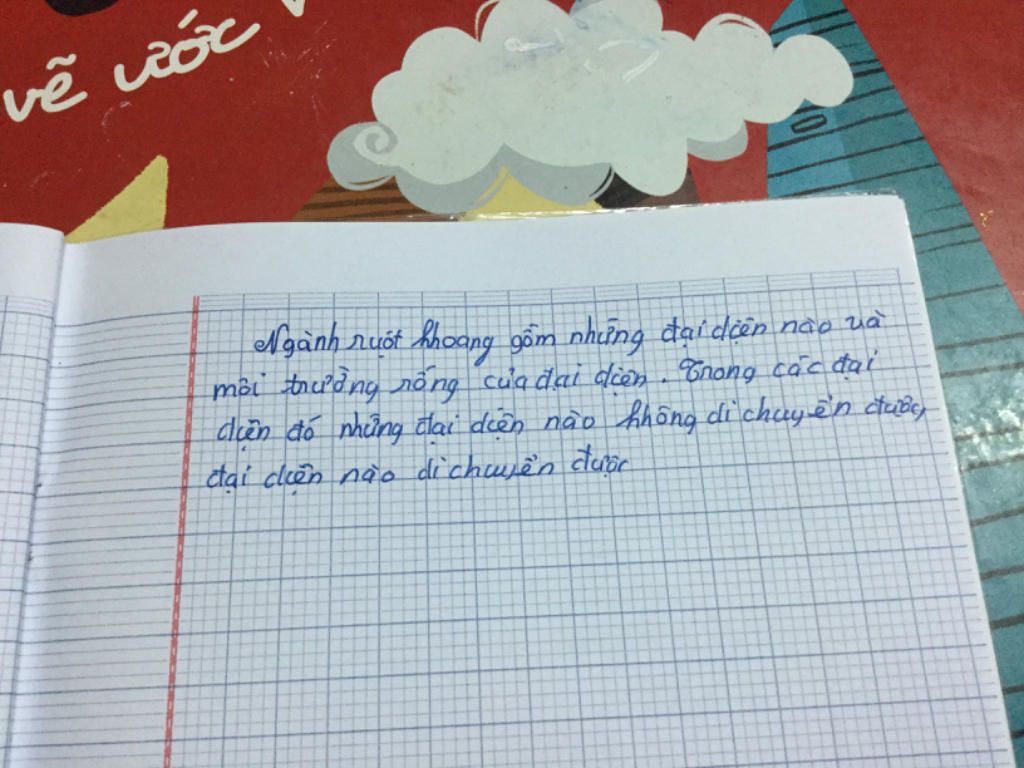 vẽ ước
Ngành ruột khoang gồm những đại diện nào và
môi trường sống của đại diện. Trong các đại
diện đó những đại diện nào không di chuyển được,
đại diện nào di chuyển được